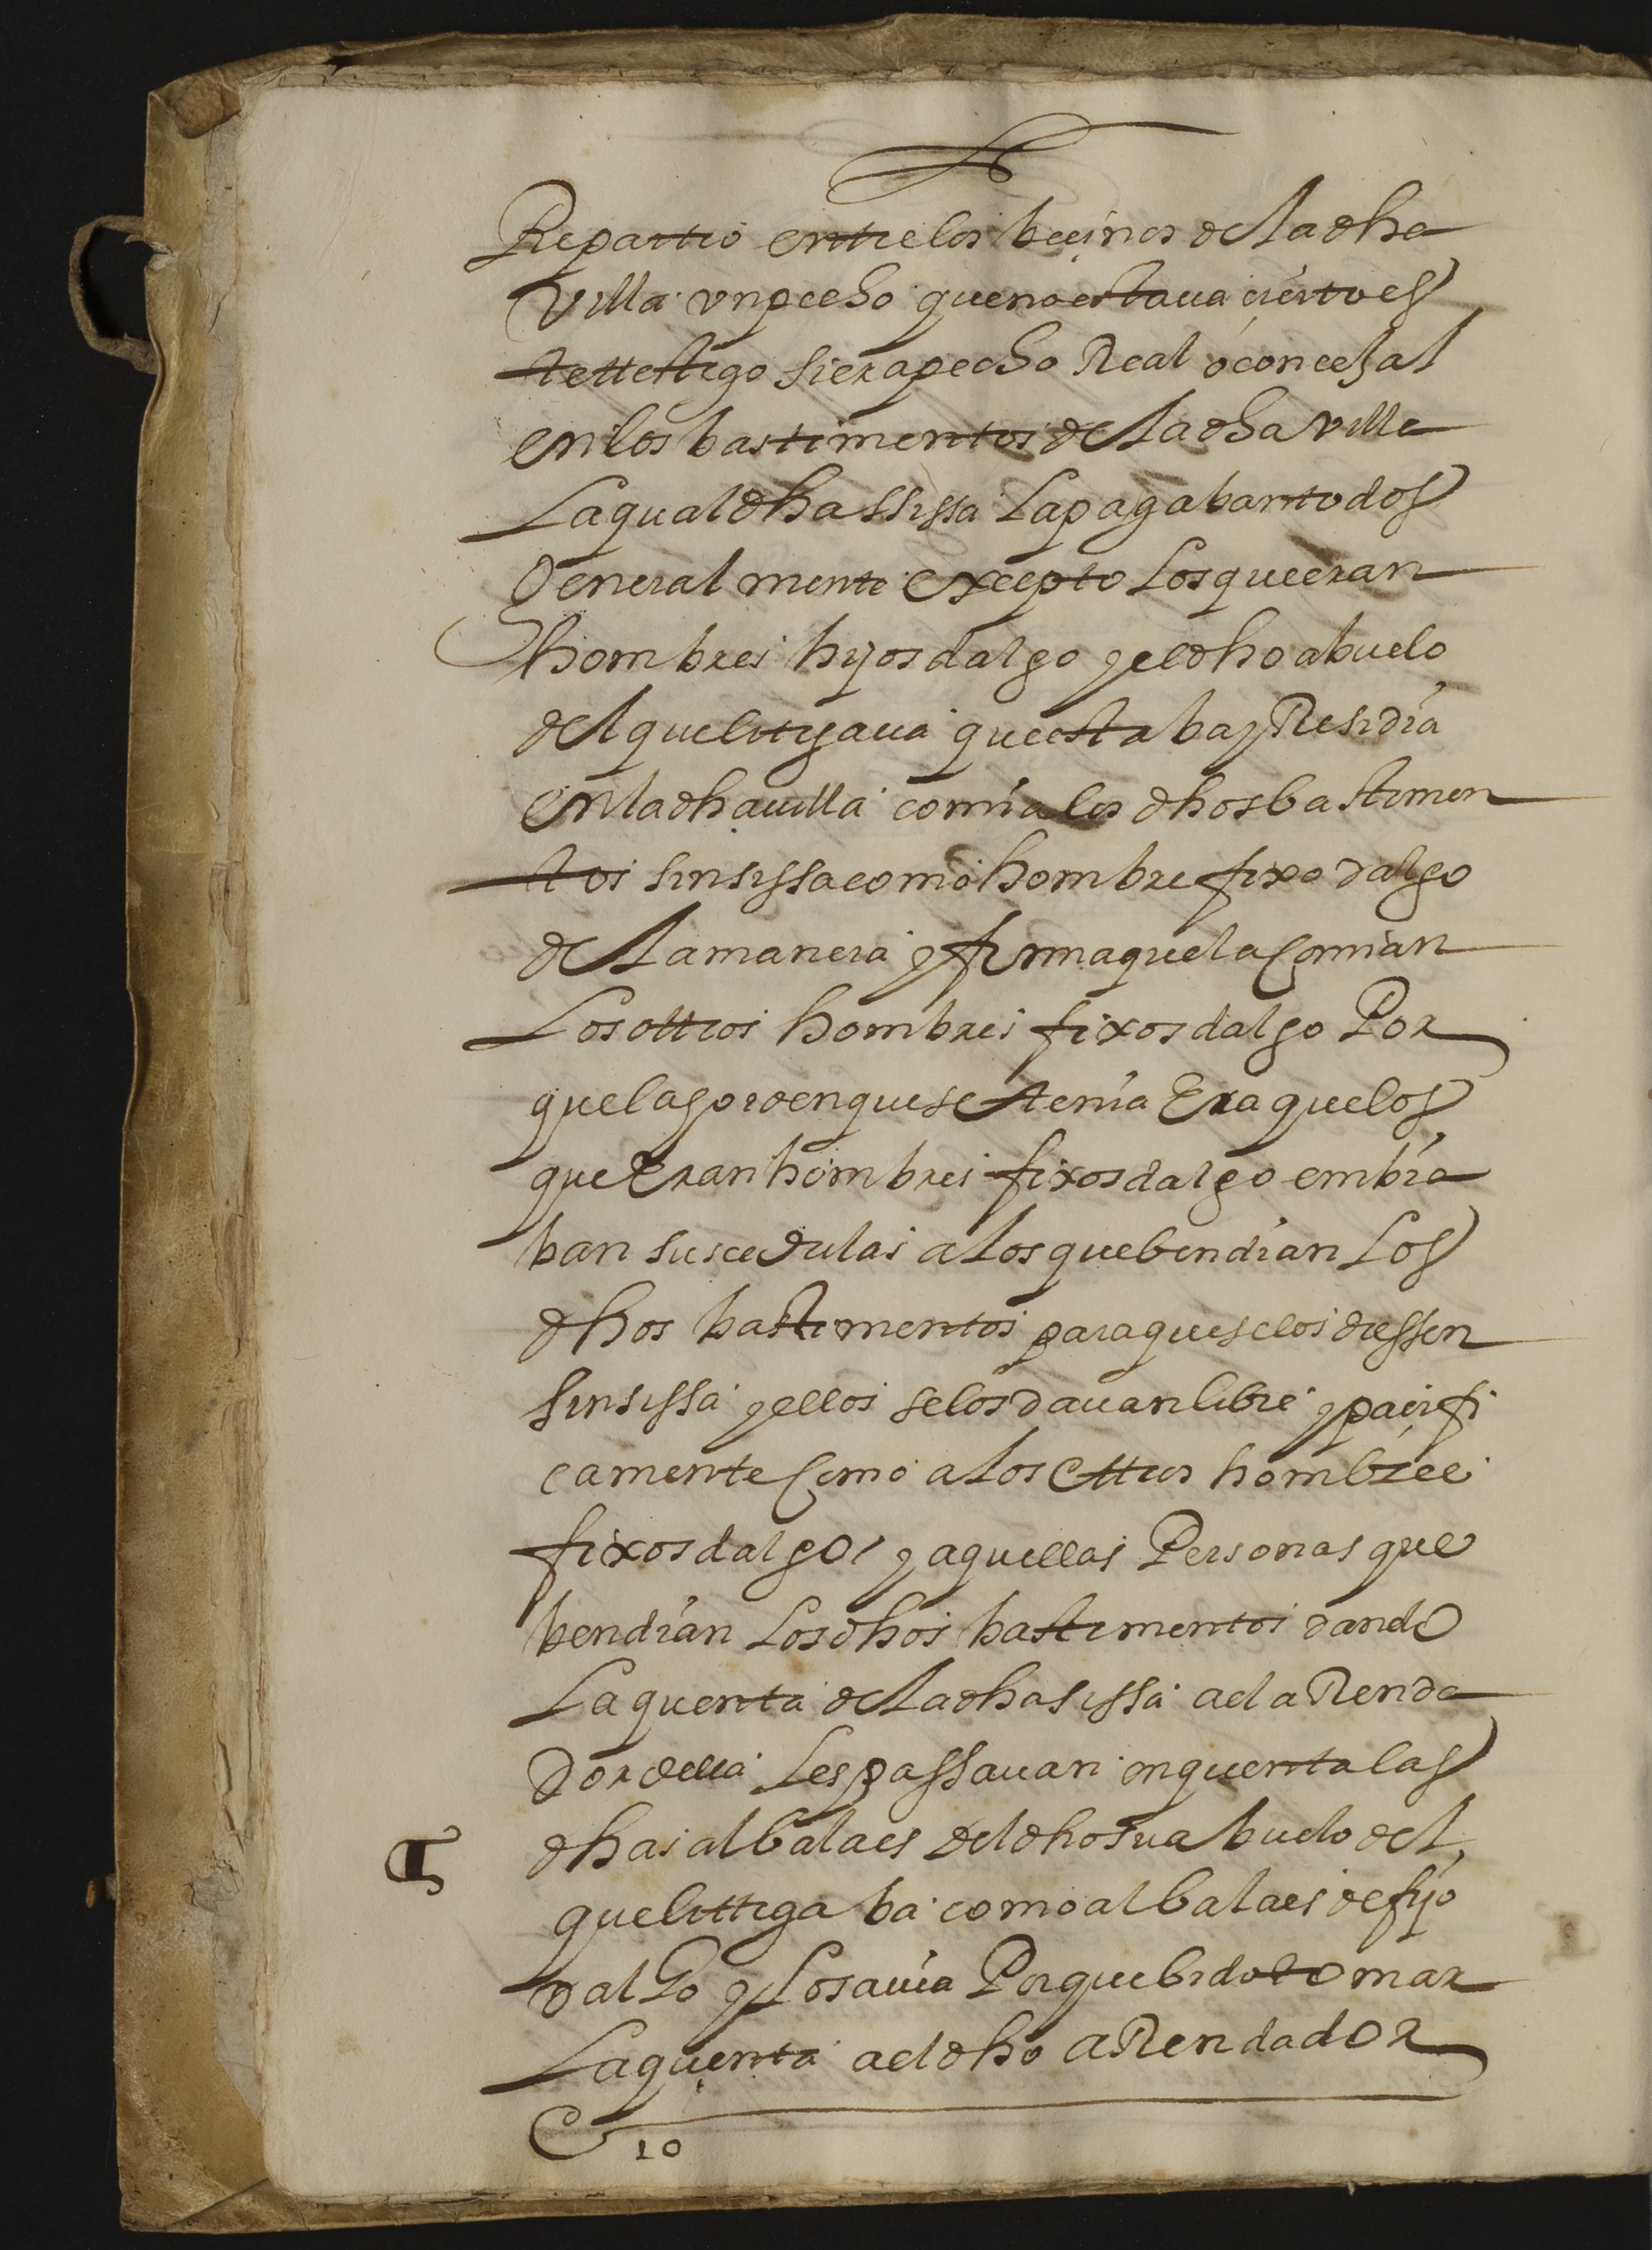 Repartio entre los beçinos de la dha
villa un pecho que no estaua çierto es
te testigo si era pecho Real o conçejal
en los bastimentos de la dha villa
La qual dha sissa La pagaban todos
General mente excepto Los que eran
hombres hijos dalgo y el dho abuelo
del que litigaua que estaba y Residia
en la dha uilla comia los dhos bastimen
tos sin sissa como hombre fixo dalgo
de la manera y forma que la comian
Los ottros hombres fixos dalgo Por
que la horden que se tenia Era que los
que Eran hombres fixos dalgo embia
ban sus cedulas a los que bendian Los
dhos bastimentos para que se los diessen
sin sissa y ellos se los dauan libre y paçifi
camente Como a los ottros hombres
fixos dalgo y aquellas Personas que
bendian Los dhos bastimentos dando
La quenta de la dha sissa ael aRenda
Dor della Les passauan en quenta las
dhas albalaes del dho su abuelo del
que littigaba como albalaes de fijo
dalgo y Lo sauia Porque bido tomar
La quenta ael dho aRendador
10